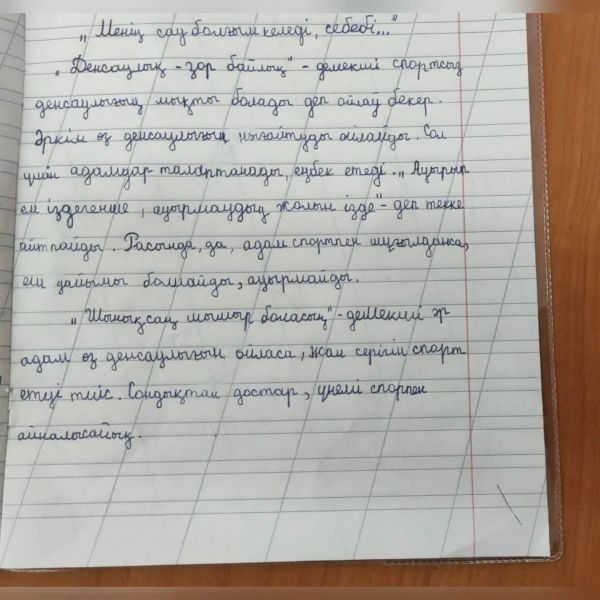 „Менің сау болғым келеді, себебі..."
„Денсаулық - зор байлық" - демекші спортсыз
денсаулығың мықты болады деп ойлау бекер.
Әркім өз денсаулығын нығайтуды ойлайды. Сол
үшін адамдар талаптанады, еңбек етеді. „Ауырып
ем іздегенше, ауырмаудың жолын ізде" - деп текке
айтпайды. Расында, да, адам спортпен шұғылданса,
еш уайымы болмайды, ауырмайды.
„Шынықсаң шымыр боласың" - демекші әр
адам өз денсаулығын ойласа, жан серігін спорт
етуі тиіс. Сондықтан достар, үнемі спорпен
айналысайық.